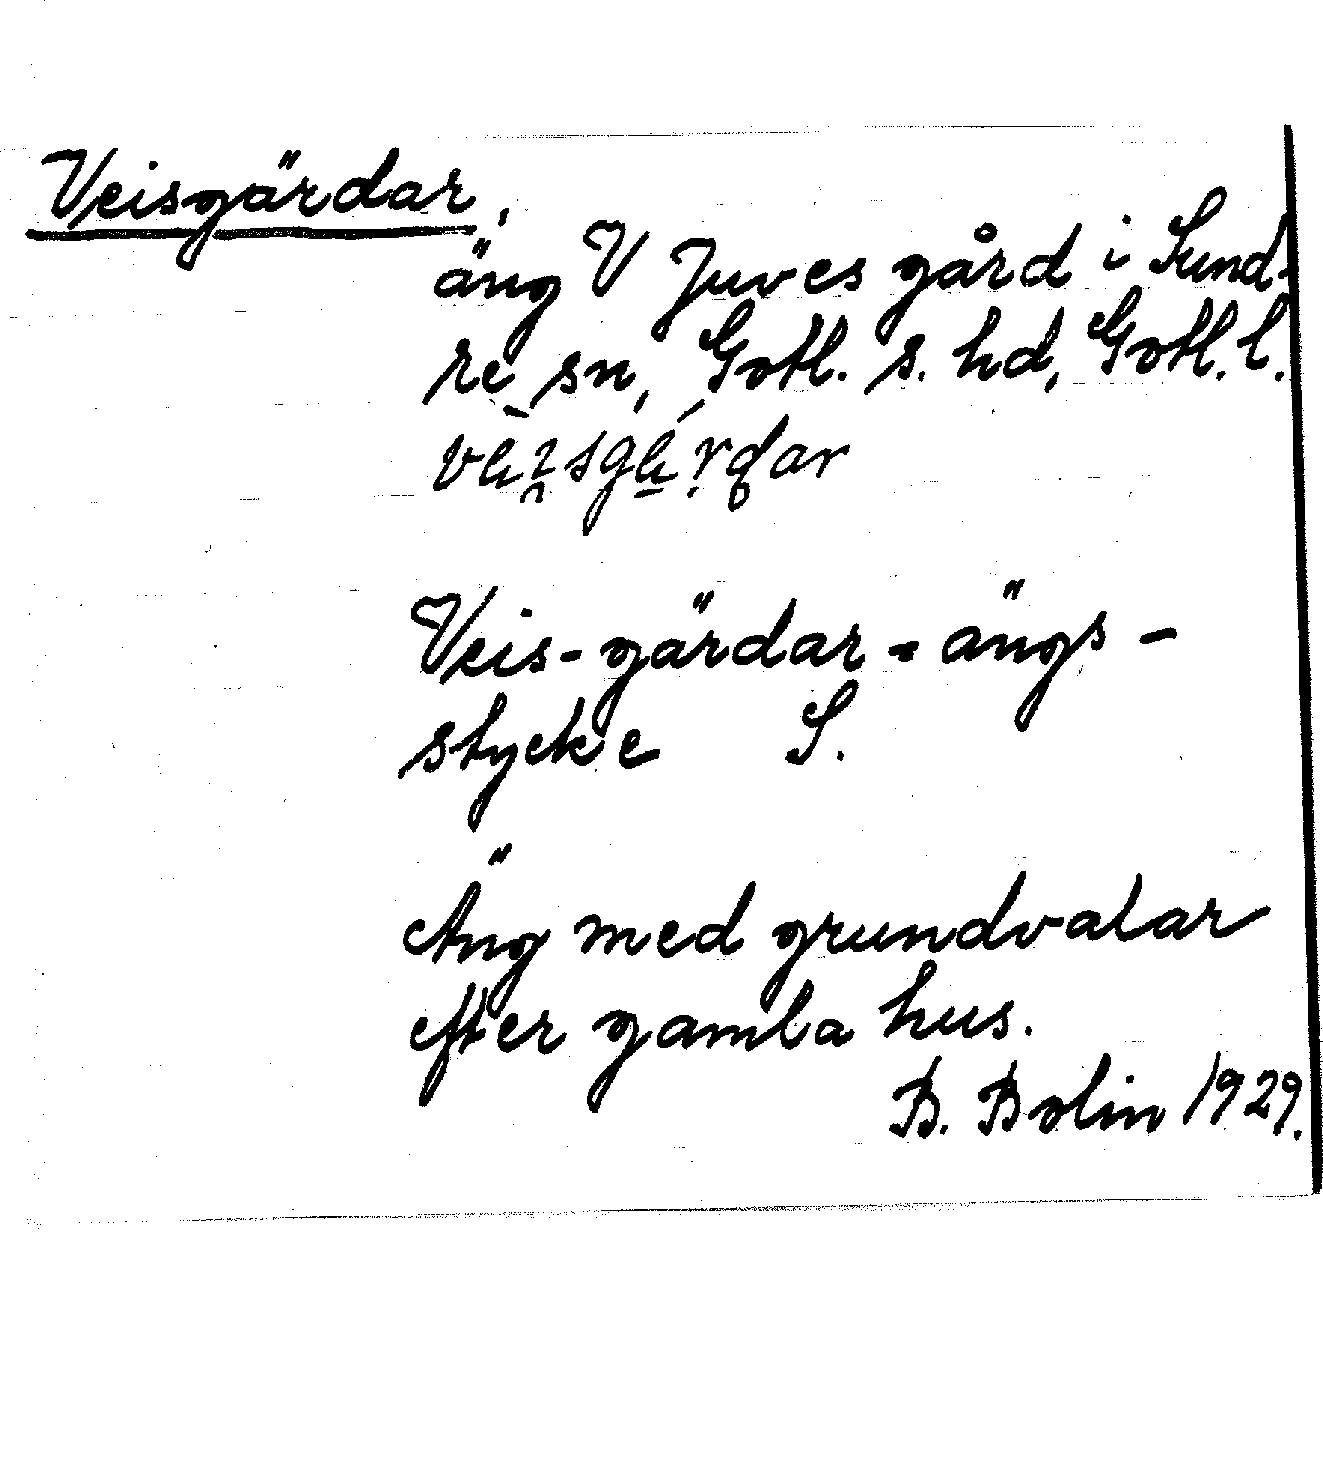 Veisgärdar,
äng V Juves gård i Sund-
re sn, Gotl. s. hd, Gotl. l.
Veis-gärdar = ängs-
stycke S.
Äng med grundvalar
efter gamla hus.
B. Bolin 1929.